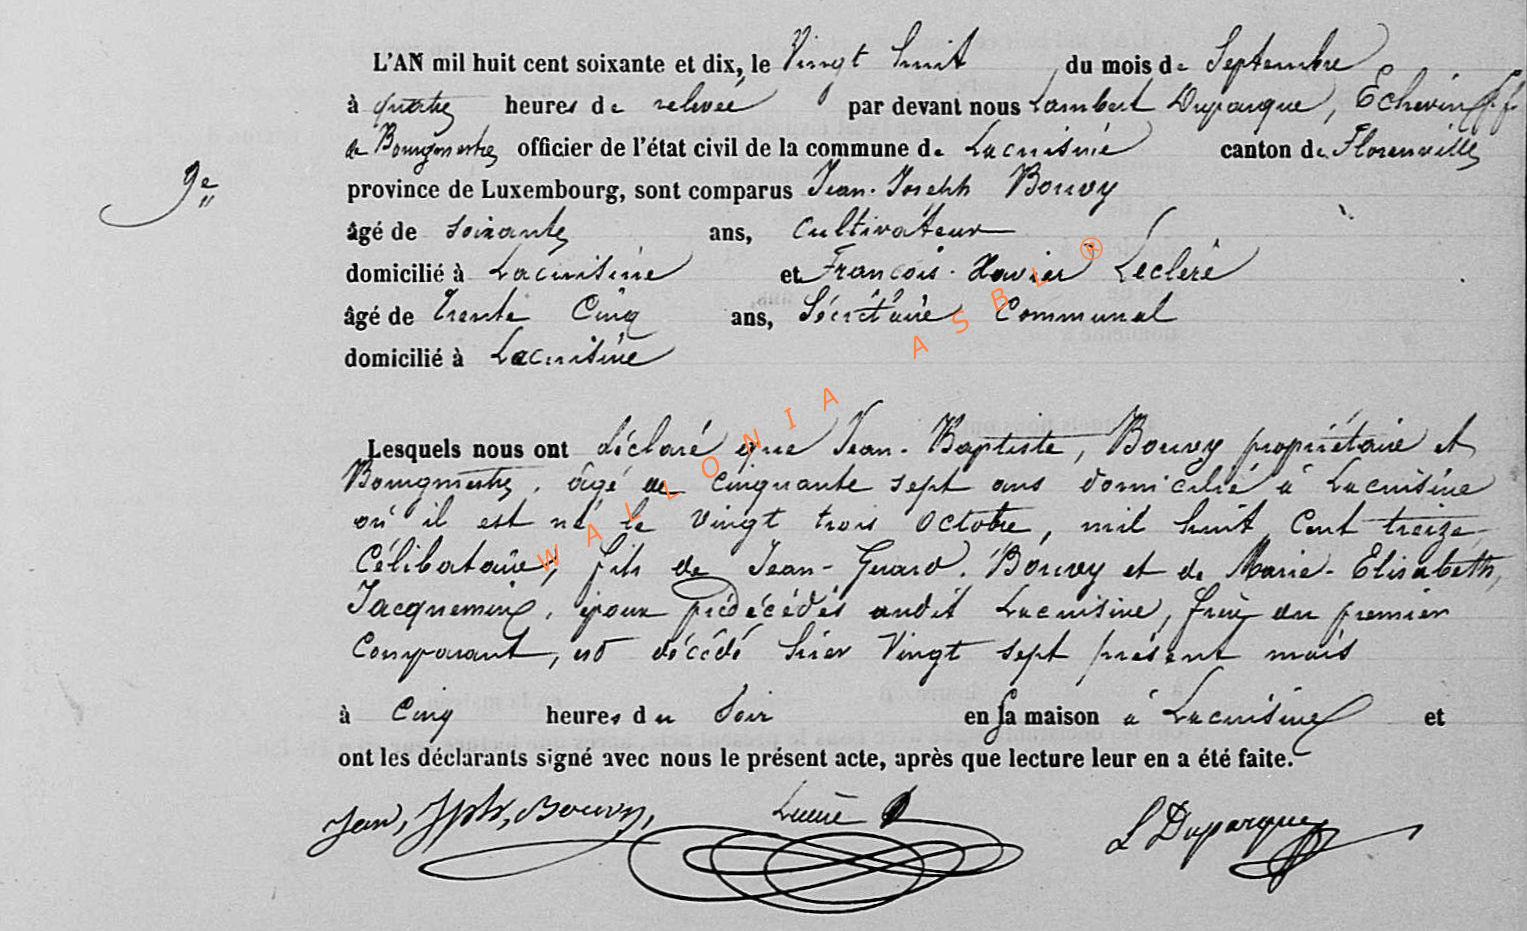 L'AN mil huit cent soixante et dix, le Vingt huit du mois de Septembre
à quatre heures de relevée par devant nous Lambert Duparque, Echevin f.f.
de Bourgmestre officier de l'état civil de la commune de Lacuisine canton de Florenville
9e
province de Luxembourg, sont comparus Jean-Joseph Bouvy
âgé de soixante ans, Cultivateur
domicilié à Lacuisine et François-Xavier Leclère
âgé de trente Cinq ans, Sécrétaire Communal
domicilié à Lacuisine
Lesquels nous ont déclaré que Jean-Baptiste, Bouvy propriétaire et
Bourgmestre, âgé de Cinquante sept ans domicilié à Lacuisine
où il est né le Vingt trois Octobre, mil huit Cent treize
Célibataire, fils de Jean-Gerard Bouvy et de Marie-Elisabeth,
Jacquemin, époux prédécédés audit Lacuisine, frère du premier
Comparant, est décédé hier Vingt sept présent mois
à Cinq heures du Soir en sa maison à Lacuisine et
ont les déclarants signé avec nous le présent acte, après que lecture leur en a été faite.
Jean, Jph, Bouvy, L Duparque
WALLONIA ASBL ®